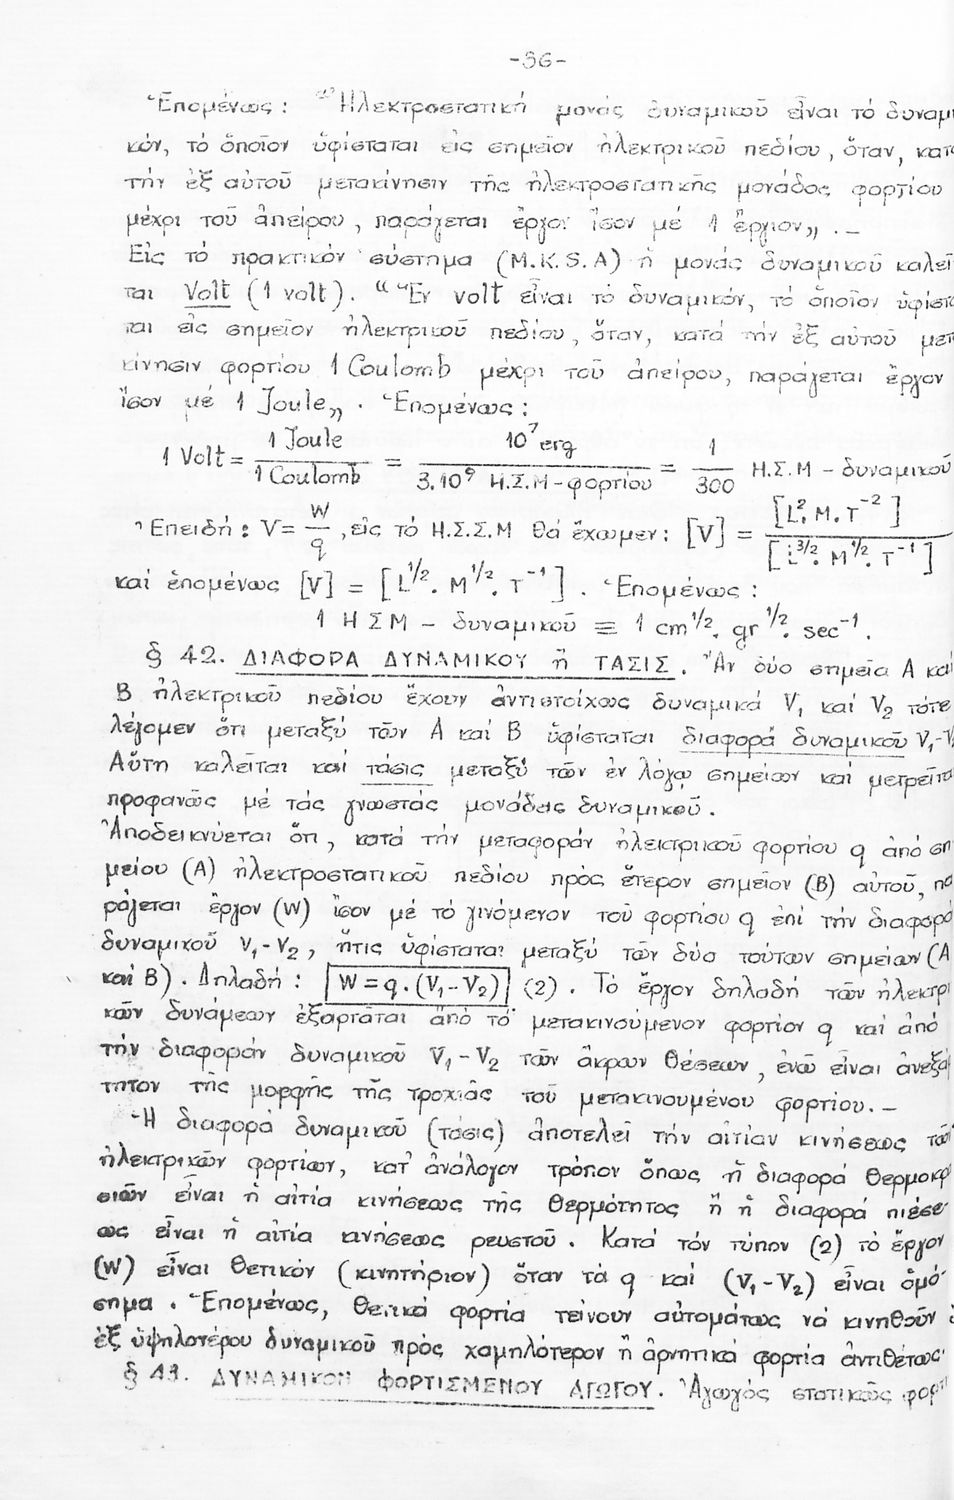 -36-
Ἑπομένως: "Ἠλεκτροστατική μονάς δυναμικοῦ εἶναι τό δυναμι
κόν, τό ὁποῖον ὑφίσταται εἰς σημεῖον ἠλεκτρικοῦ πεδίου, ὅταν, κατά
τήν ἐξ αὐτοῦ μετακίνησιν τῆς ἠλεκτροστατικῆς μονάδος φορτίου
μέχρι τοῦ ἀπείρου, παράγεται ἔργον ἴσον μέ 1 ἔργιον„ . _
Εἰς τό πρακτικόν σύστημα (M.K.S.A) ἡ μονάς δυναμικοῦ καλεῖ
ται Volt (1 volt). "Ἕν volt εἶναι τό δυναμικόν, τό ὁποῖον ὑφίστα
ται εἰς σημεῖον ἠλεκτρικοῦ πεδίου, ὅταν, κατά τήν ἐξ αὐτοῦ μετα
κίνησιν φορτίου 1 Coulomb μέχρι τοῦ ἀπείρου, παράγεται ἔργον
ἴσον μέ 1 Joule„ . Ἑπομένως:
1 Volt = 1 Joule / 1 Coulomb = 10⁷ erg / 3.10⁹ Η.Σ.Μ-φορτίου = 1 / 300 Η.Σ.Μ - δυναμικοῦ
Ἐπειδή: V = W / q , εἰς τό Η.Σ.Σ.Μ θά ἔχωμεν: [V] = [L². M. T⁻²] / [L^3/2. M^1/2. T⁻¹]
καί ἑπομένως [V] = [L^1/2. M^1/2. T⁻¹] . Ἑπομένως:
1 ΗΣΜ - δυναμικοῦ ≡ 1 cm^1/2. gr^1/2. sec⁻¹.
§ 42. ΔΙΑΦΟΡΑ ΔΥΝΑΜΙΚΟΥ ἤ ΤΑΣΙΣ. Ἄν δύο σημεῖα Α καί
Β ἠλεκτρικοῦ πεδίου ἔχουν ἀντιστοίχως δυναμικά V₁ καί V₂ τότε
λέγομεν ὅτι μεταξύ τῶν Α καί Β ὑφίσταται διαφορά δυναμικοῦ V₁-V₂
Αὕτη καλεῖται καί τάσις μεταξύ τῶν ἐν λόγῳ σημείων καί μετρεῖται
προφανῶς μέ τάς γνωστάς μονάδας δυναμικοῦ.
Ἀποδεικνύεται ὅτι, κατά τήν μεταφοράν ἠλεκτρικοῦ φορτίου q ἀπό ση
μείου (Α) ἠλεκτροστατικοῦ πεδίου πρός ἕτερον σημεῖον (Β) αὐτοῦ, πα
ράγεται ἔργον (W) ἴσον μέ τό γινόμενον τοῦ φορτίου q ἐπί τήν διαφορά
δυναμικοῦ V₁-V₂, ἥτις ὑφίσταται μεταξύ τῶν δύο τούτων σημείων (Α
καί Β). Δηλαδή: W = q . (V₁-V₂) (2). Τό ἔργον δηλαδή τῶν ἠλεκτρι
κῶν δυνάμεων ἐξαρτᾶται ἀπό τό μετακινούμενον φορτίον q καί ἀπό
τήν διαφοράν δυναμικοῦ V₁-V₂ τῶν ἄκρων θέσεων, ἐνῶ εἶναι ἀνεξάρ
τητον τῆς μορφῆς τῆς τροχιᾶς τοῦ μετακινουμένου φορτίου.-
Ἡ διαφορά δυναμικοῦ (τάσις) ἀποτελεῖ τήν αἰτίαν κινήσεως τῶν
ἠλεκτρικῶν φορτίων, κατ' ἀνάλογον τρόπον ὅπως ἡ διαφορά θερμοκρα
σιῶν εἶναι ἡ αἰτία κινήσεως τῆς θερμότητος ἤ ἡ διαφορά πιέσε
ως εἶναι ἡ αἰτία κινήσεως ρευστοῦ. Κατά τόν τύπον (2) τό ἔργον
(W) εἶναι θετικόν (κινητήριον) ὅταν τά q καί (V₁-V₂) εἶναι ὁμό
σημα. Ἑπομένως, θετικά φορτία τείνουν αὐτομάτως νά κινηθοῦν
ἐξ ὑψηλοτέρου δυναμικοῦ πρός χαμηλότερον ἤ ἀρνητικά φορτία ἀντιθέτως.
§ 43. ΔΥΝΑΜΙΚΟΝ ΦΟΡΤΙΣΜΕΝΟΥ ΑΓΩΓΟΥ. Ἀγωγός στατικῶς φορτι